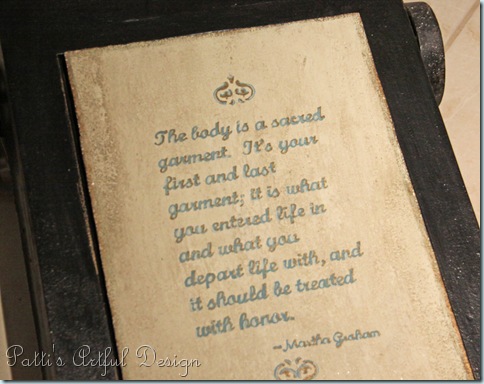 The body is a sacred
garment. It's your
first and last
garment; it is what
you entered life in
and what you
depart life with, and
it should be treated
with honor.
~Martha Graham
Patti's Artful Design